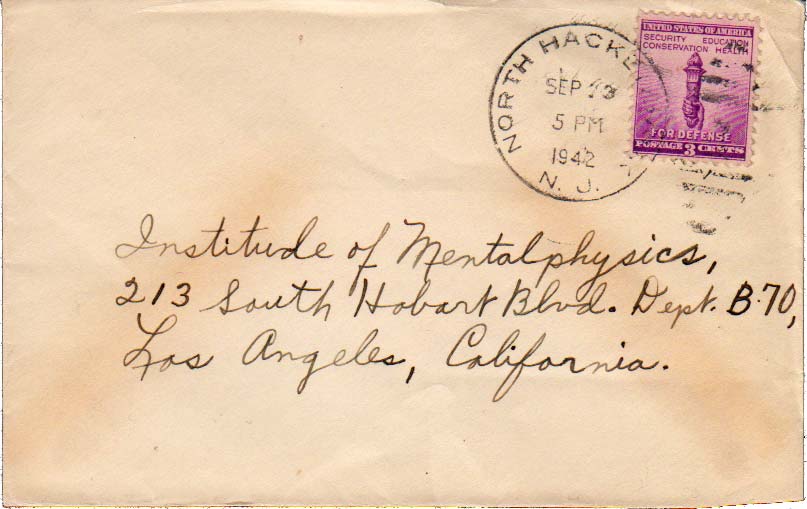 UNITED STATES OF AMERICA
SECURITY EDUCATION
CONSERVATION HEALTH
FOR DEFENSE
POSTAGE 3 CENTS
NORTH
SEP
5 PM
1942
N. J.
Institude of Mentalphysics,
213 South Hobart Blvd. Dept. B-70,
Los Angeles, California.